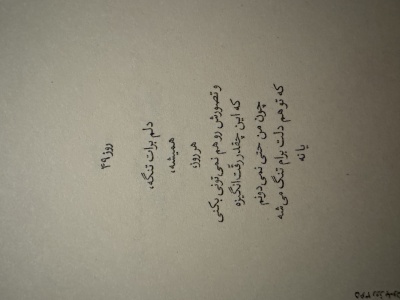 روز ۴۹
دلم برات تنگه،
همیشه،
هر روز،
و تصورش رو هم نمی‌تونی بکنی
که این چقدر رقت‌انگیزه
چون من حتی نمی‌دونم
که تو هم دلت برام تنگ می‌شه
یا نه